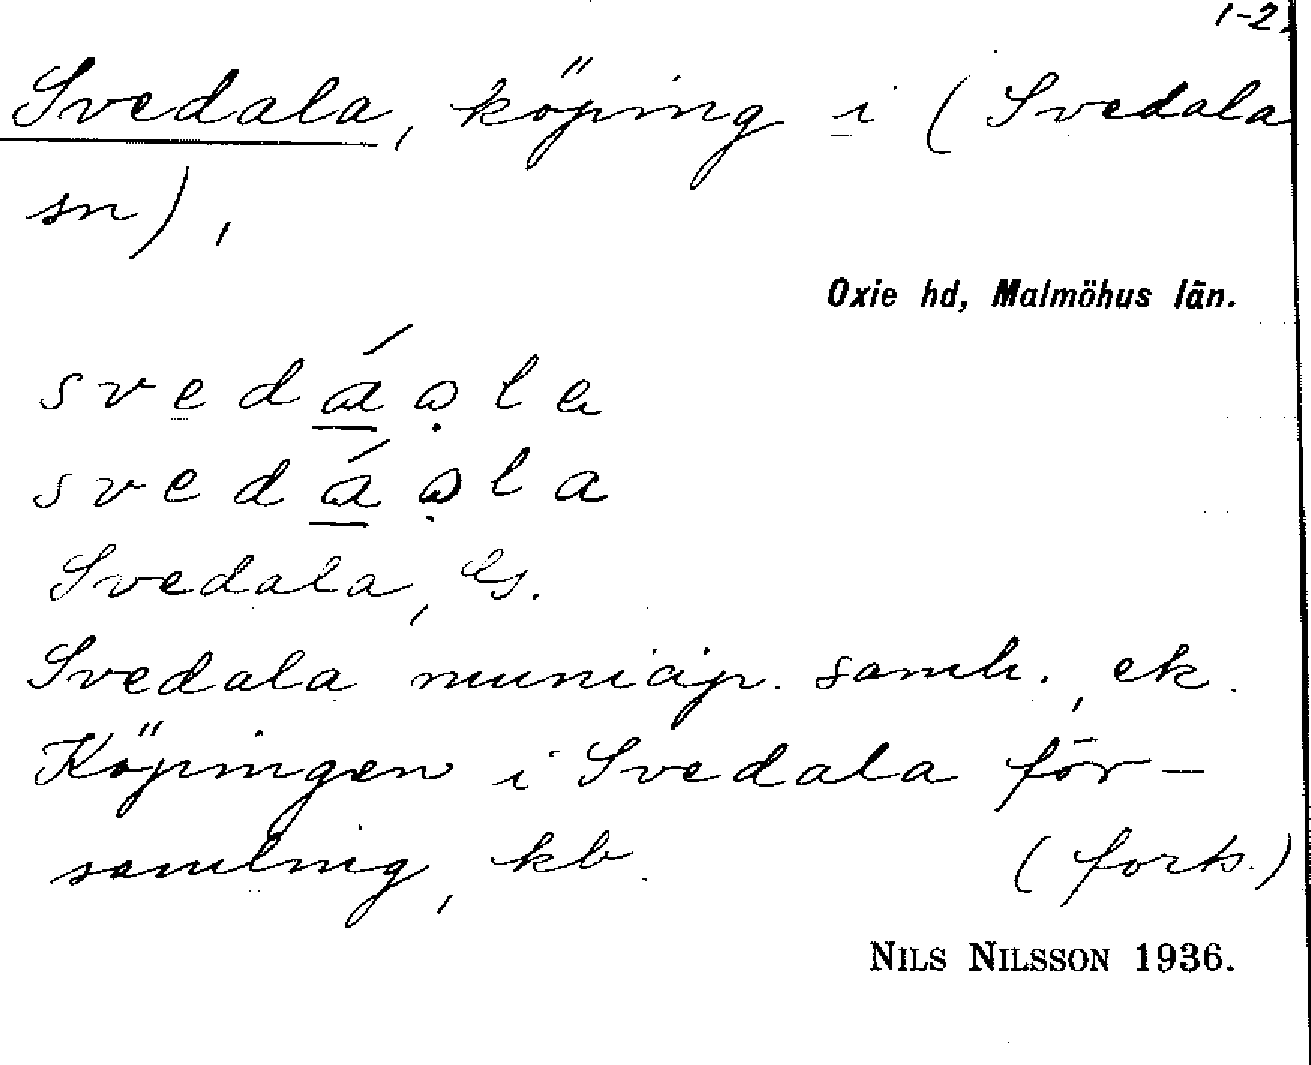 1-2.
Svedala, köping i (Svedala
sn),
Oxie hd, Malmöhus län.
Svedala,
Svedala municip. samh., ek.
Köpingen i Svedala för-
samling, kb. (forts.)
NILS NILSSON 1936.